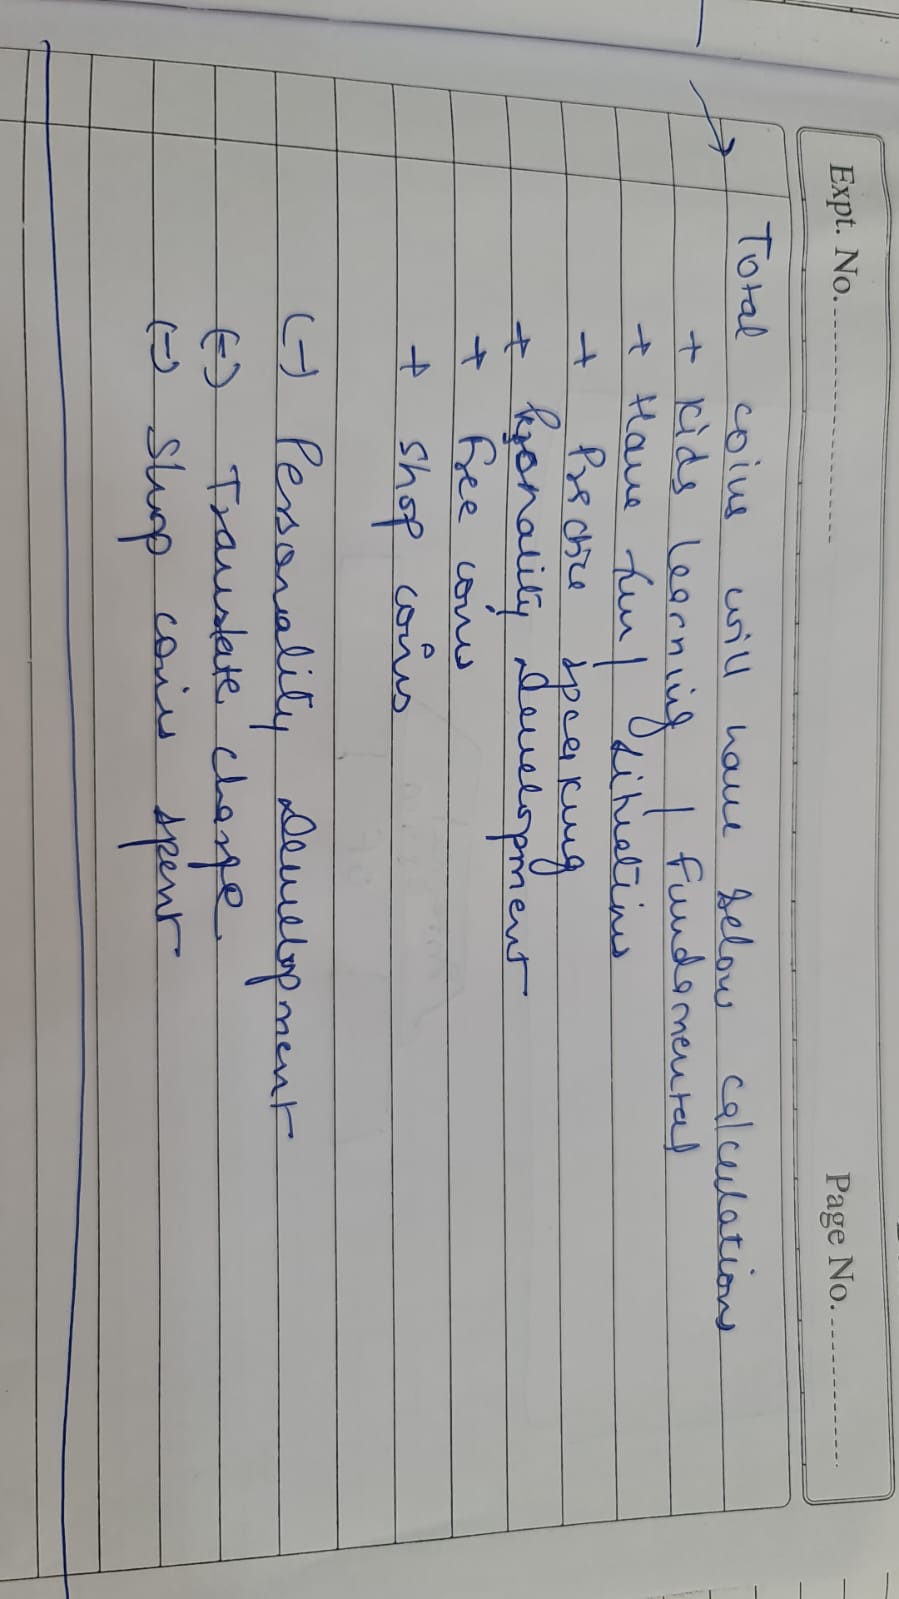 Expt. No.
Page No.
Total coins will have below calculations
+ Kids learning / Fundamental
+ Have fun / Situations
+ Practice speaking
+ Personality Development
+ Free coins
+ Shop coins
(-) Personality Development
(-) Translate charge
(-) Shop coins spent